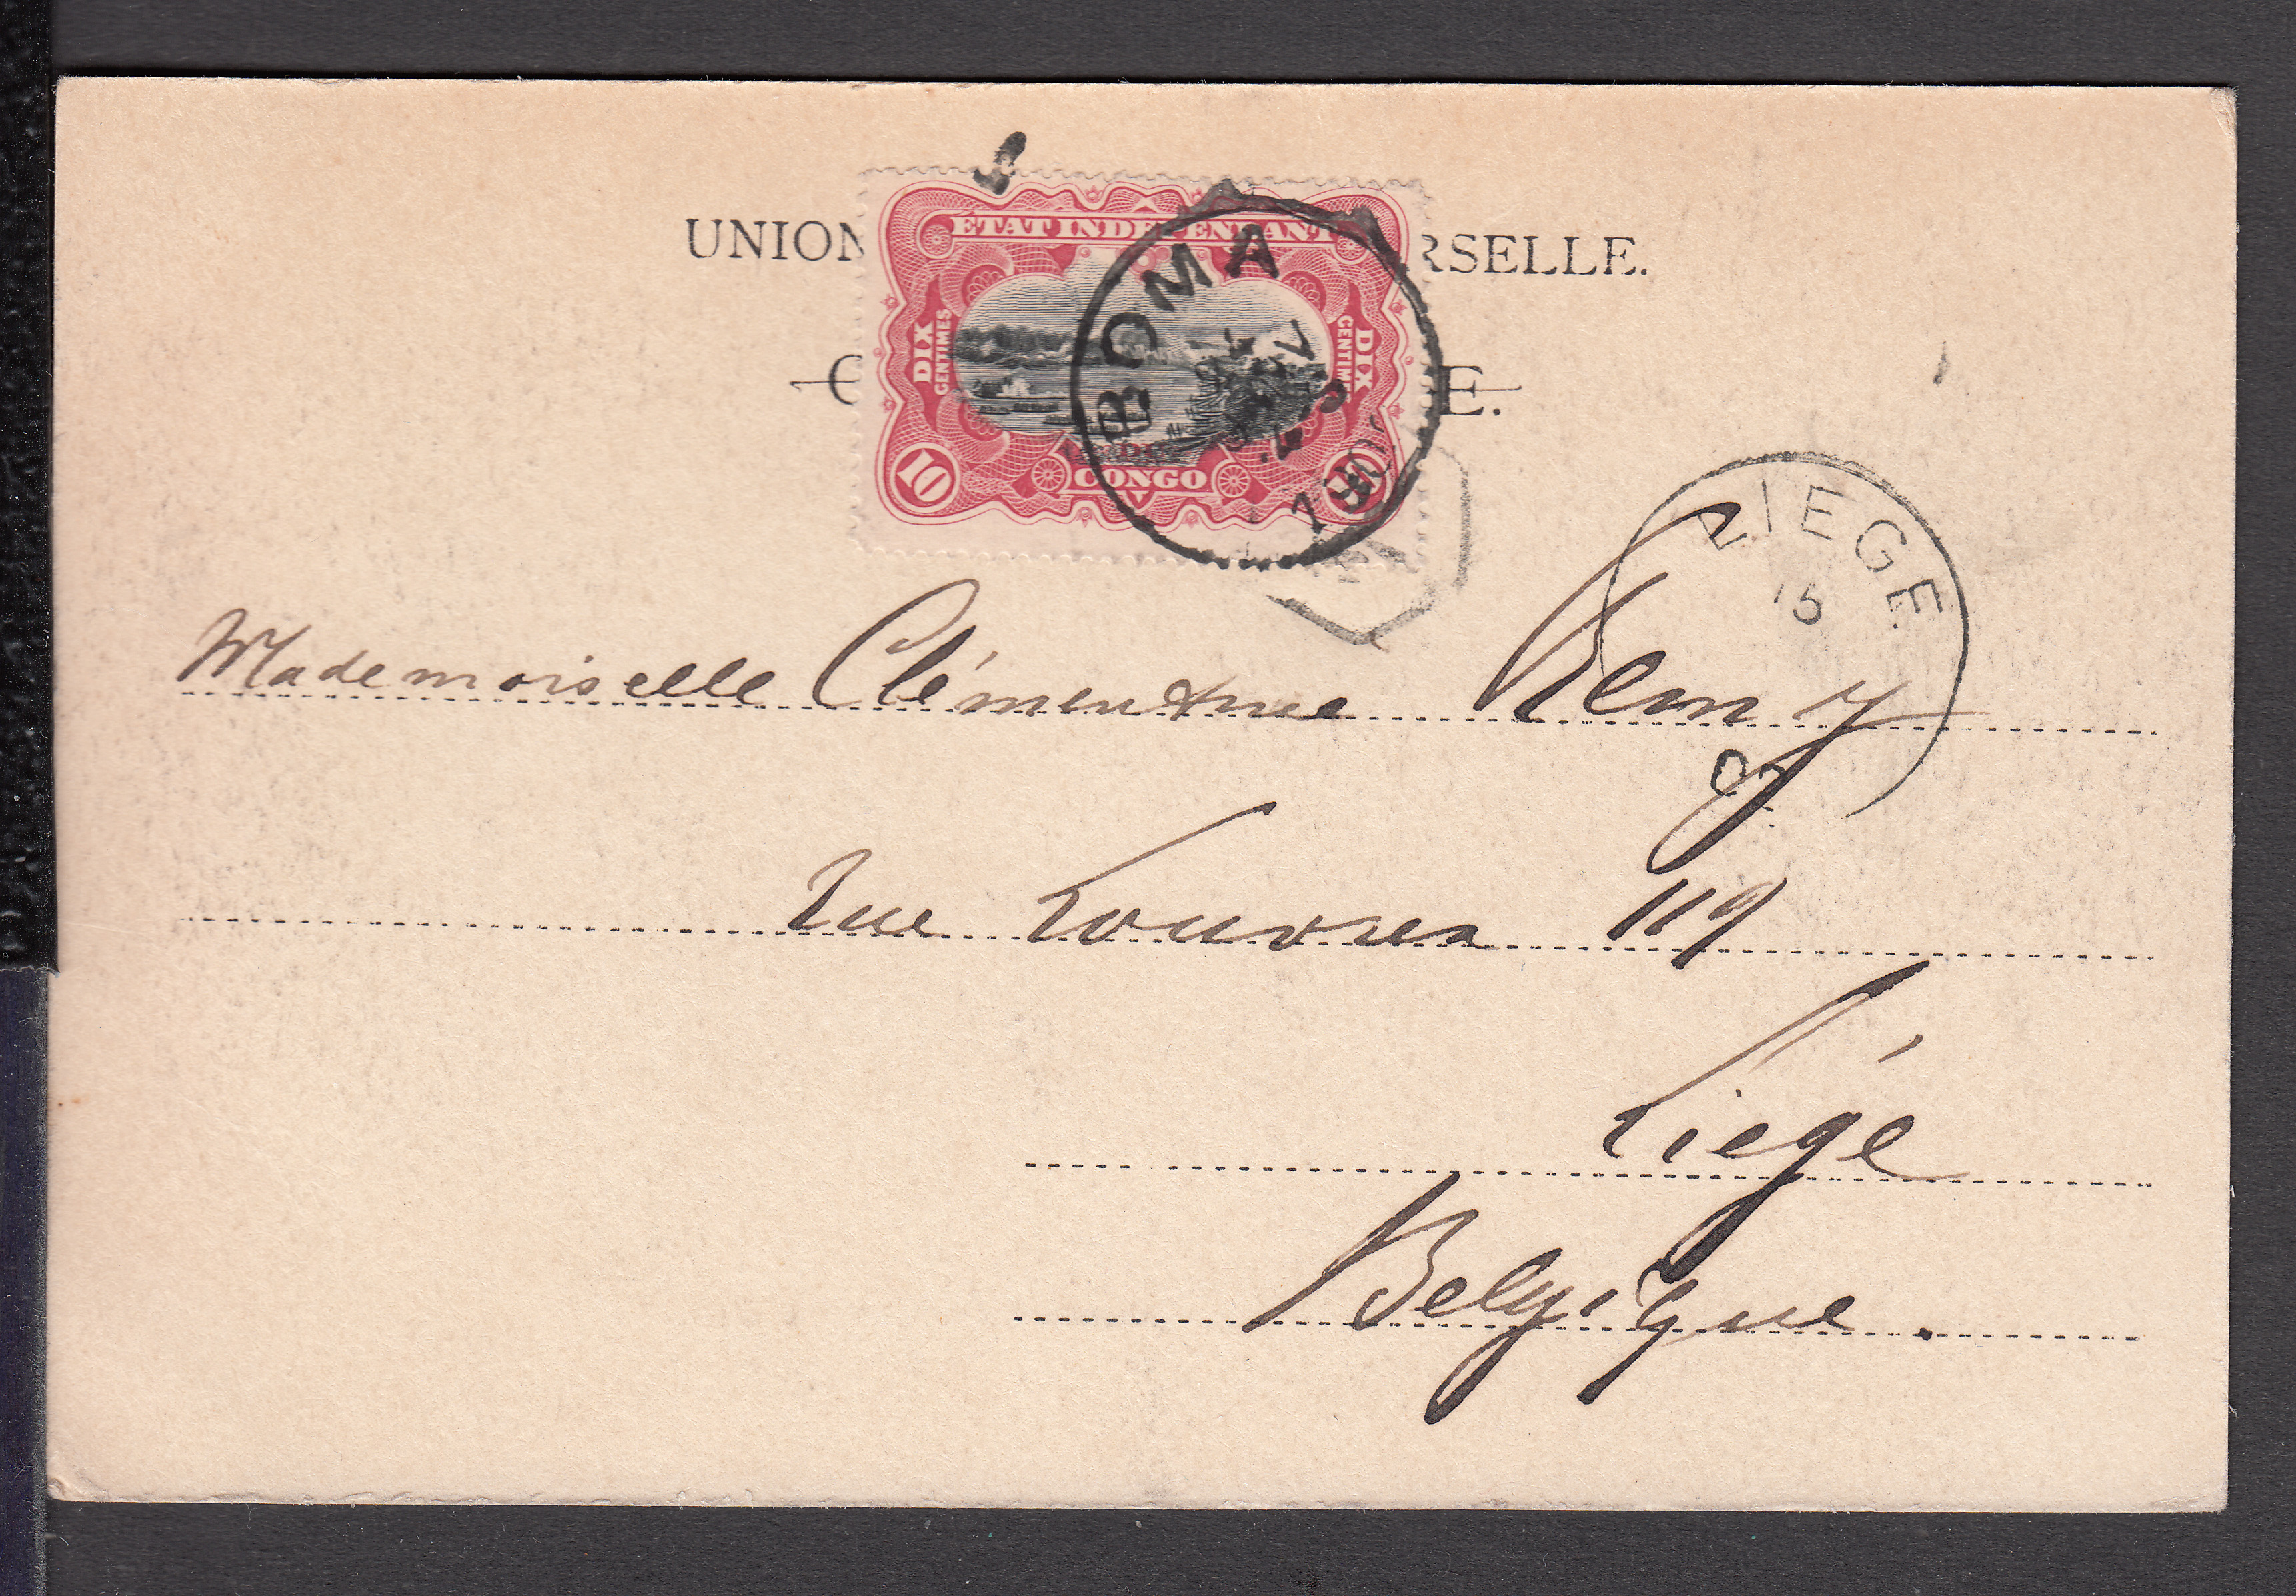 UNION RSELLE.
ÉTAT INDÉPENDANT
DIX CENTIMES
DIX CENTIMES
DU
CONGO
10
BOMA
190
C E.
LIEGE
15
Mademoiselle Clémentine Remy
rue Louvrex 119
Liége
Belgique.